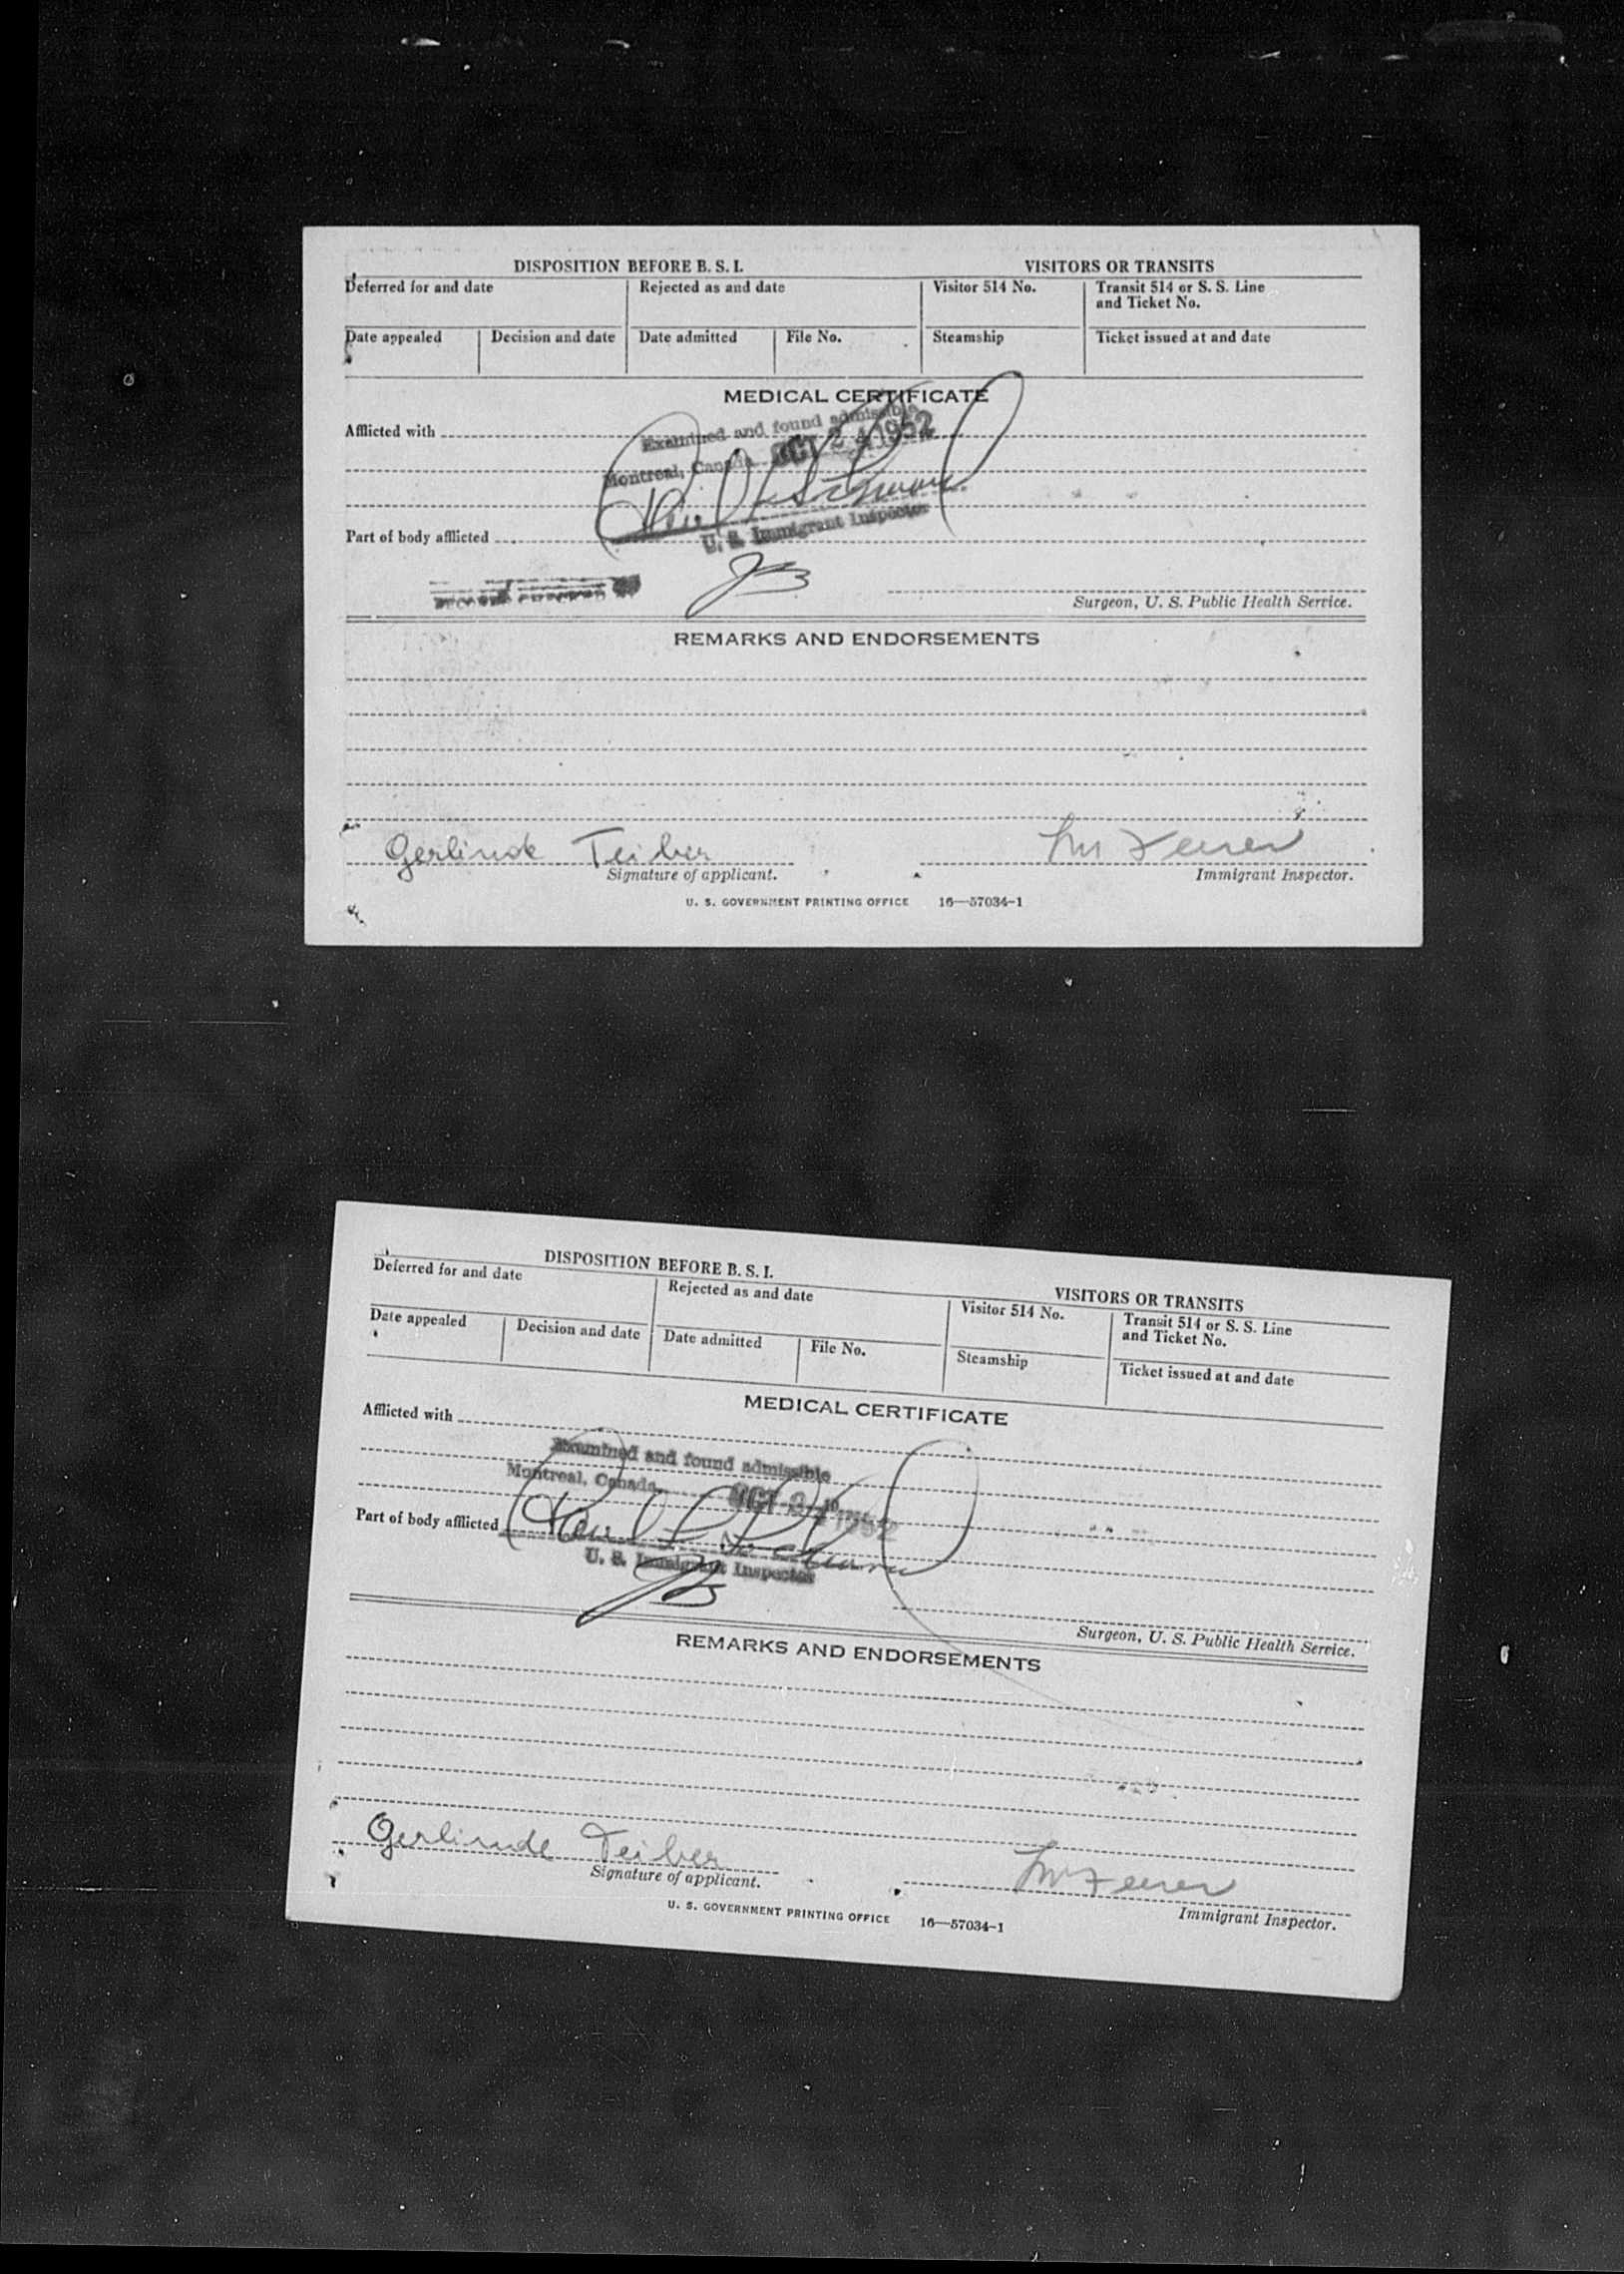 DISPOSITION BEFORE B. S. I. VISITORS OR TRANSITS
Deferred for and date Rejected as and date Visitor 514 No. Transit 514 or S. S. Line
and Ticket No.
Date appealed Decision and date Date admitted File No. Steamship Ticket issued at and date
MEDICAL CERTIFICATE
Afflicted with
Examined and found admissible
Montreal, Canada OCT 24 1952
U. S. Immigrant Inspector
Part of body afflicted
Surgeon, U. S. Public Health Service.
REMARKS AND ENDORSEMENTS
Gerlinde Teiber
Signature of applicant. Immigrant Inspector.
U. S. GOVERNMENT PRINTING OFFICE 16—57034-1
DISPOSITION BEFORE B. S. I. VISITORS OR TRANSITS
Deferred for and date Rejected as and date Visitor 514 No. Transit 514 or S. S. Line
and Ticket No.
Date appealed Decision and date Date admitted File No. Steamship Ticket issued at and date
MEDICAL CERTIFICATE
Afflicted with
Examined and found admissible
Montreal, Canada, OCT 1952
Part of body afflicted
U. S. Immigrant Inspector
Surgeon, U. S. Public Health Service.
REMARKS AND ENDORSEMENTS
Gerlinde Teiber
Signature of applicant. Immigrant Inspector.
U. S. GOVERNMENT PRINTING OFFICE 16—57034-1